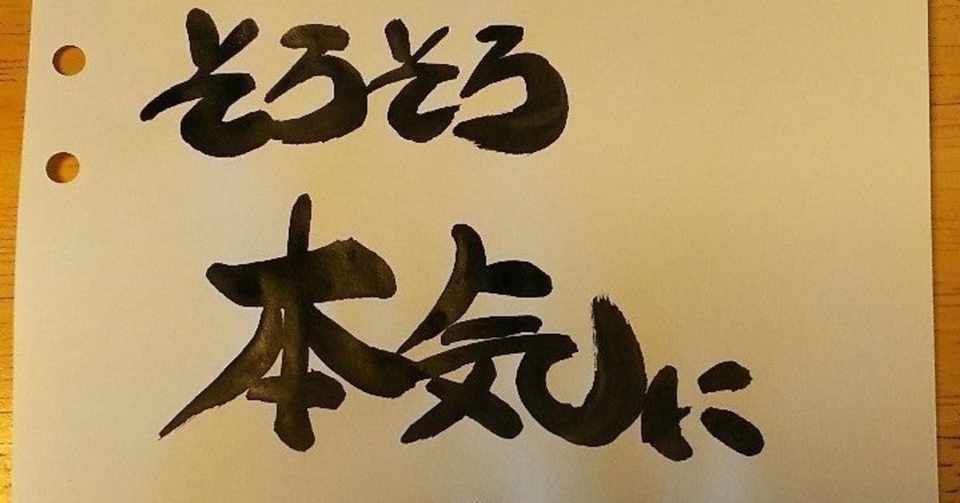 そろそろ
本気に